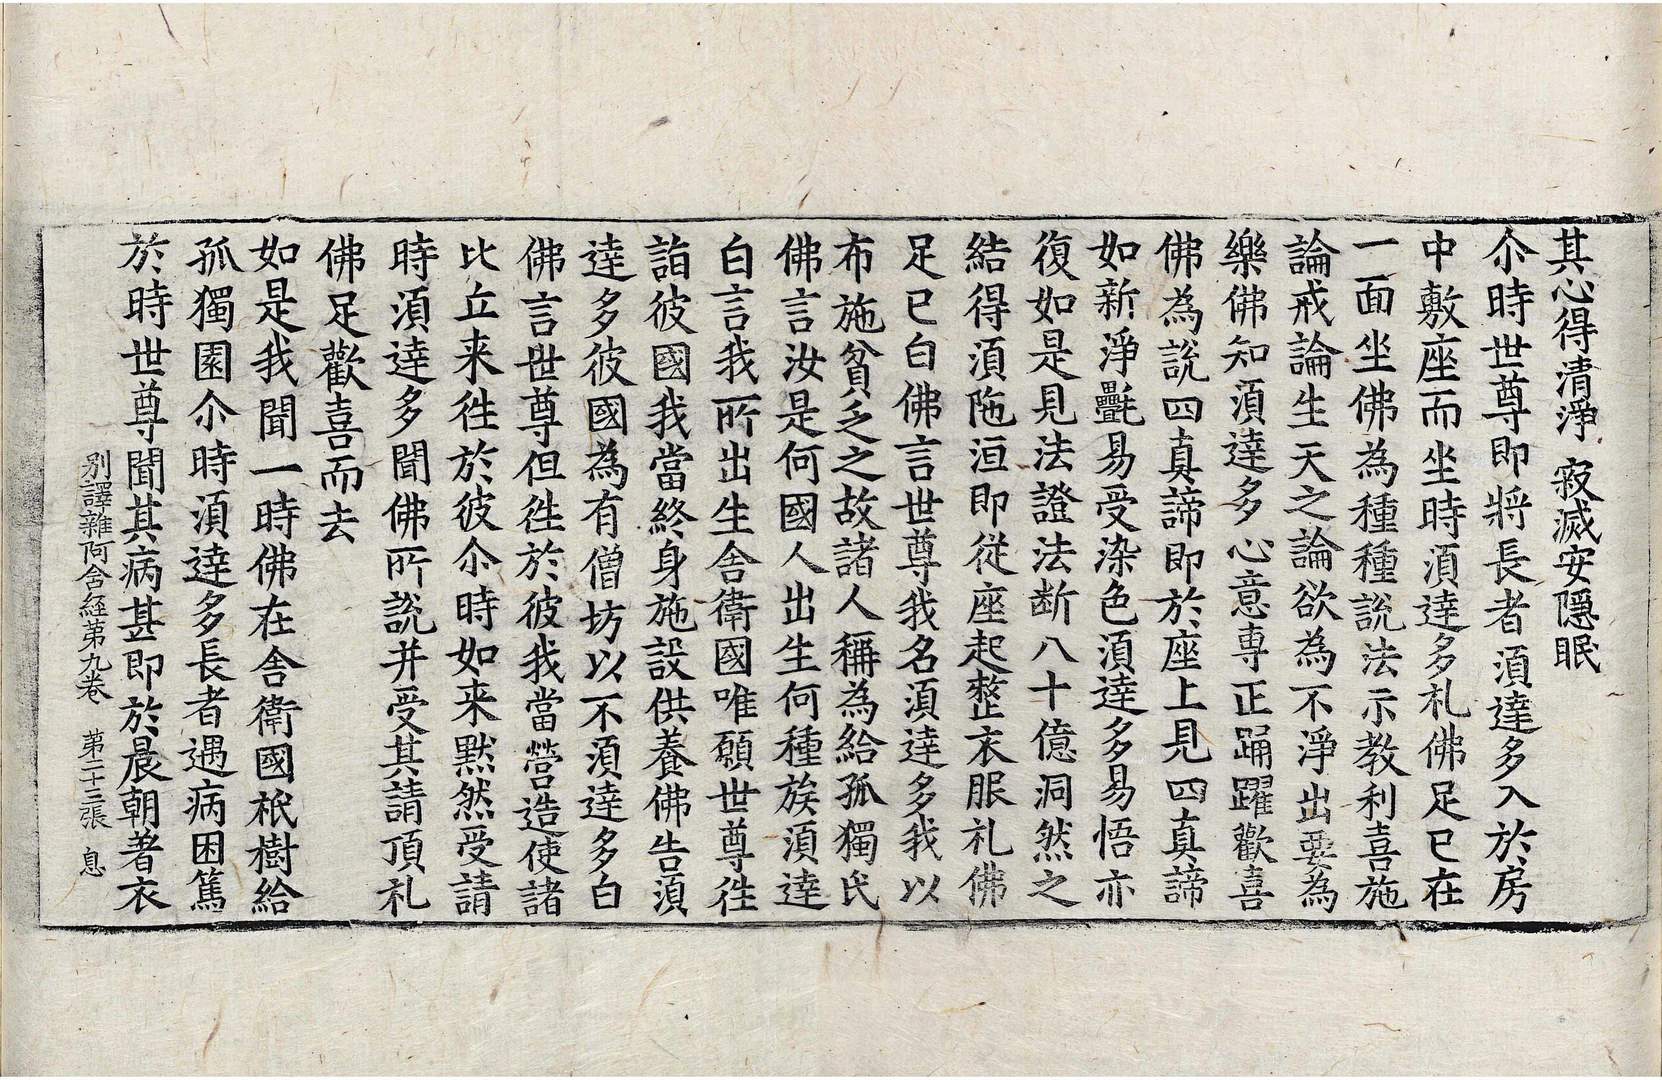 其心得清淨　寂滅安隱眠
尒時世尊即將長者須達多入於房
中敷座而坐時須達多札佛足已在
一面坐佛為種種說法示教利喜施
論戒論生天之論欲為不淨出要為
樂佛知須達多心意專正踊躍歡喜
佛為說四真諦即於座上見四真諦
如新淨㲲易受染色須達多易悟亦
復如是見法證法断八十億洞然之
結得須陁洹即從座起整衣服礼佛
足已白佛言世尊我名須達多我以
布施貧乏之故諸人稱為給孤獨氏
佛言汝是何國人出生何種族須達
白言我所出生舍衛國唯願世尊徃
詣彼國我當終身施設供養佛告須
達多彼國為有僧坊以不須達多白
佛言世尊但徃於彼我當營造使諸
比丘来徃於彼尒時如来默然受請
時須達多聞佛所說并受其請頂札
佛足歡喜而去
如是我聞一時佛在舍衛國祇樹給
孤獨園尒時須達多長者遇病困篤
於時世尊聞其病甚即於晨朝著衣
別譯雜阿含經第九卷　第二十三張　息